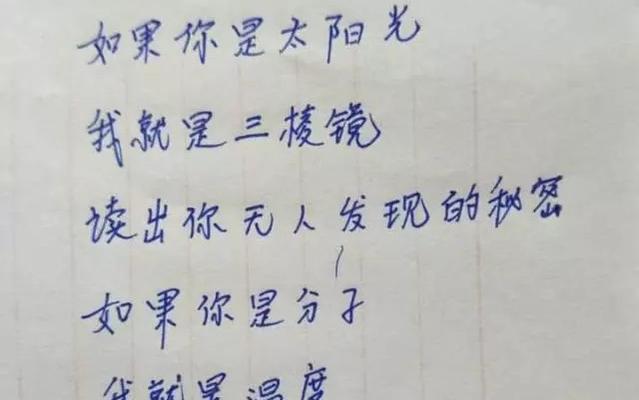 如果你是太阳光
我就是三棱镜
读出你无人发现的秘密
如果你是分子
我就是温度